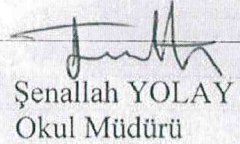 Şenallah YOLAY
Okul Müdürü